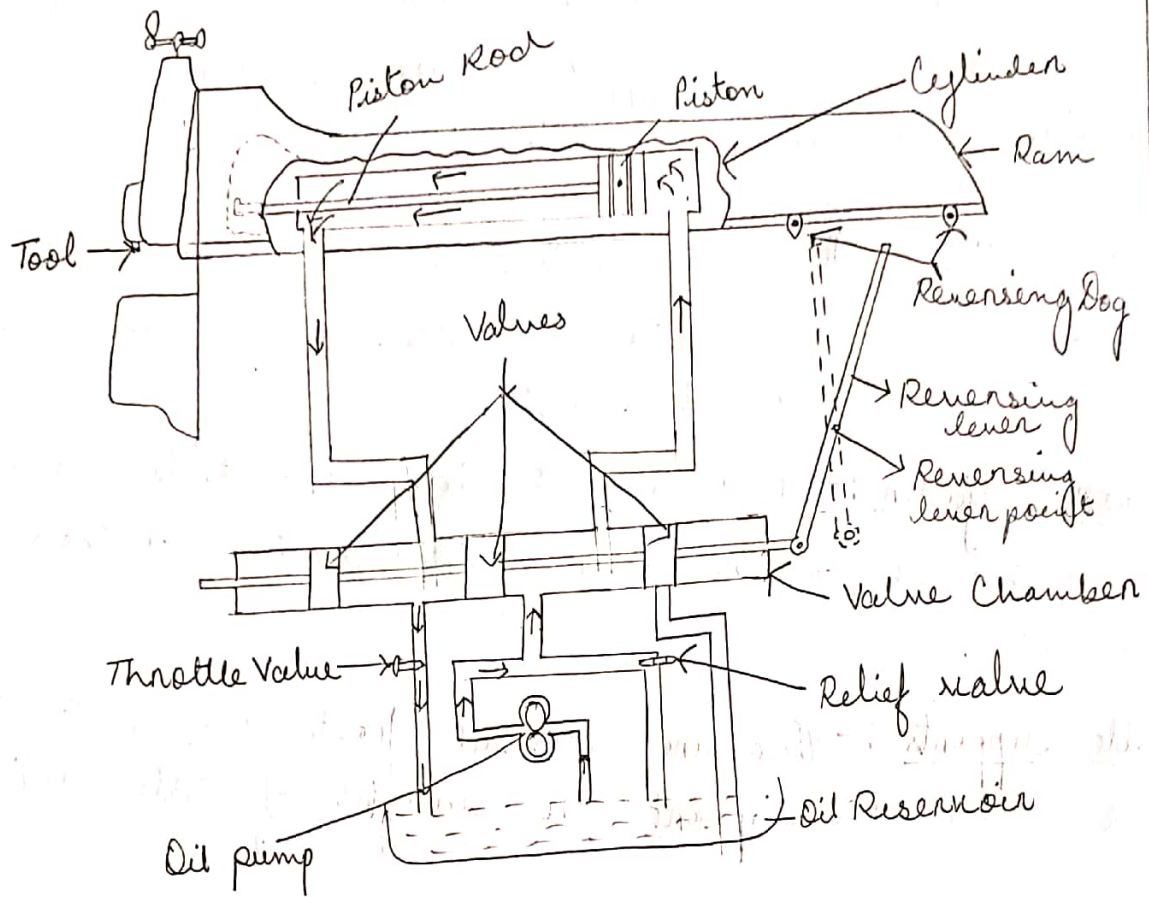 Piston Rod
Piston
Cylinder
Ram
Tool
Reversing Dog
Valves
Reversing
lever
Reversing
lever point
Valve Chamber
Throttle Valve
Relief valve
Oil Reservoir
Oil pump